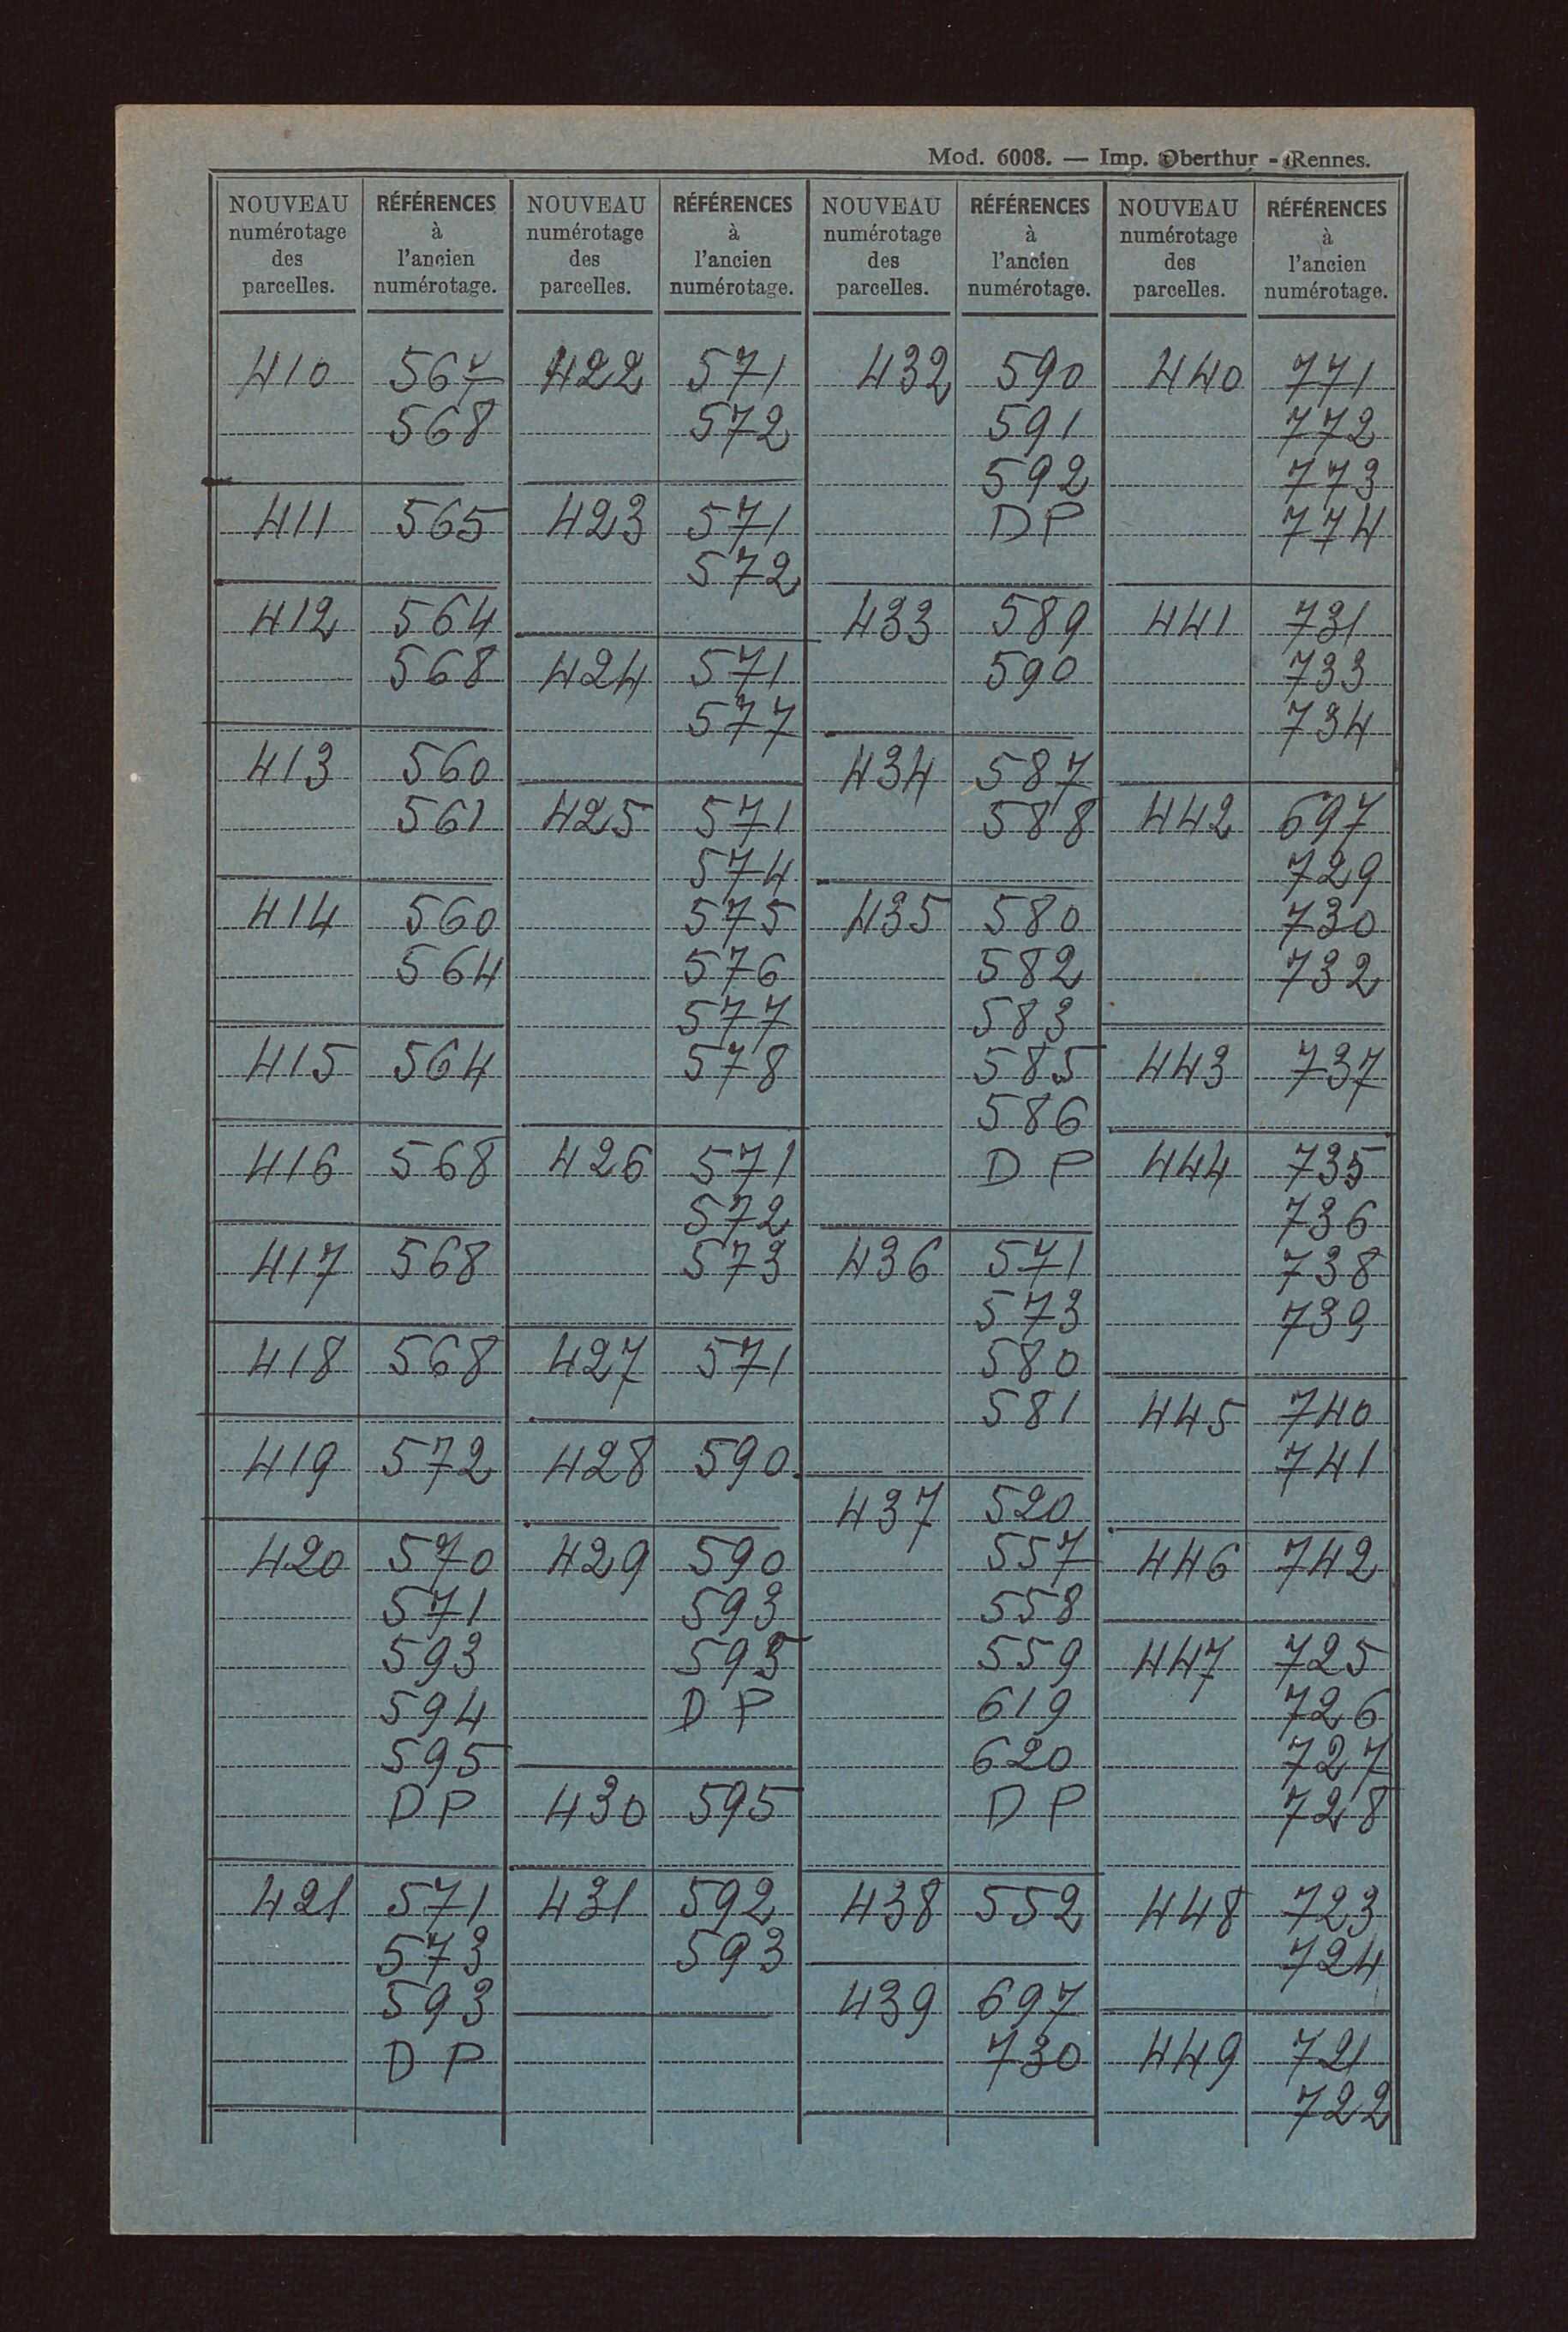 Mod. 6008. — Imp. Oberthur - Rennes.
NOUVEAU numérotage des parcelles. | RÉFÉRENCES à l'ancien numérotage. | NOUVEAU numérotage des parcelles. | RÉFÉRENCES à l'ancien numérotage. | NOUVEAU numérotage des parcelles. | RÉFÉRENCES à l'ancien numérotage. | NOUVEAU numérotage des parcelles. | RÉFÉRENCES à l'ancien numérotage.
410 567 422 571 432 590 440 771
568 572 591 772
592 773
411 565 423 571 DP 774
572
412 564 433 589 441 731
568 424 571 590 733
577 734
413 560 434 587
561 425 571 588 442 697
574 729
414 560 575 435 580 730
564 576 582 732
577 583
415 564 578 585 443 737
586
416 568 426 571 DP 444 735
572 736
417 568 573 436 571 738
573 739
418 568 427 571 580
581 445 740
419 572 428 590 741
437 520
420 570 429 590 557 446 742
571 593 558
593 595 559 447 725
594 DP 619 726
595 620 727
DP 430 595 DP 728
421 571 431 592 438 552 448 723
573 593 724
593 439 697
DP 730 449 721
722